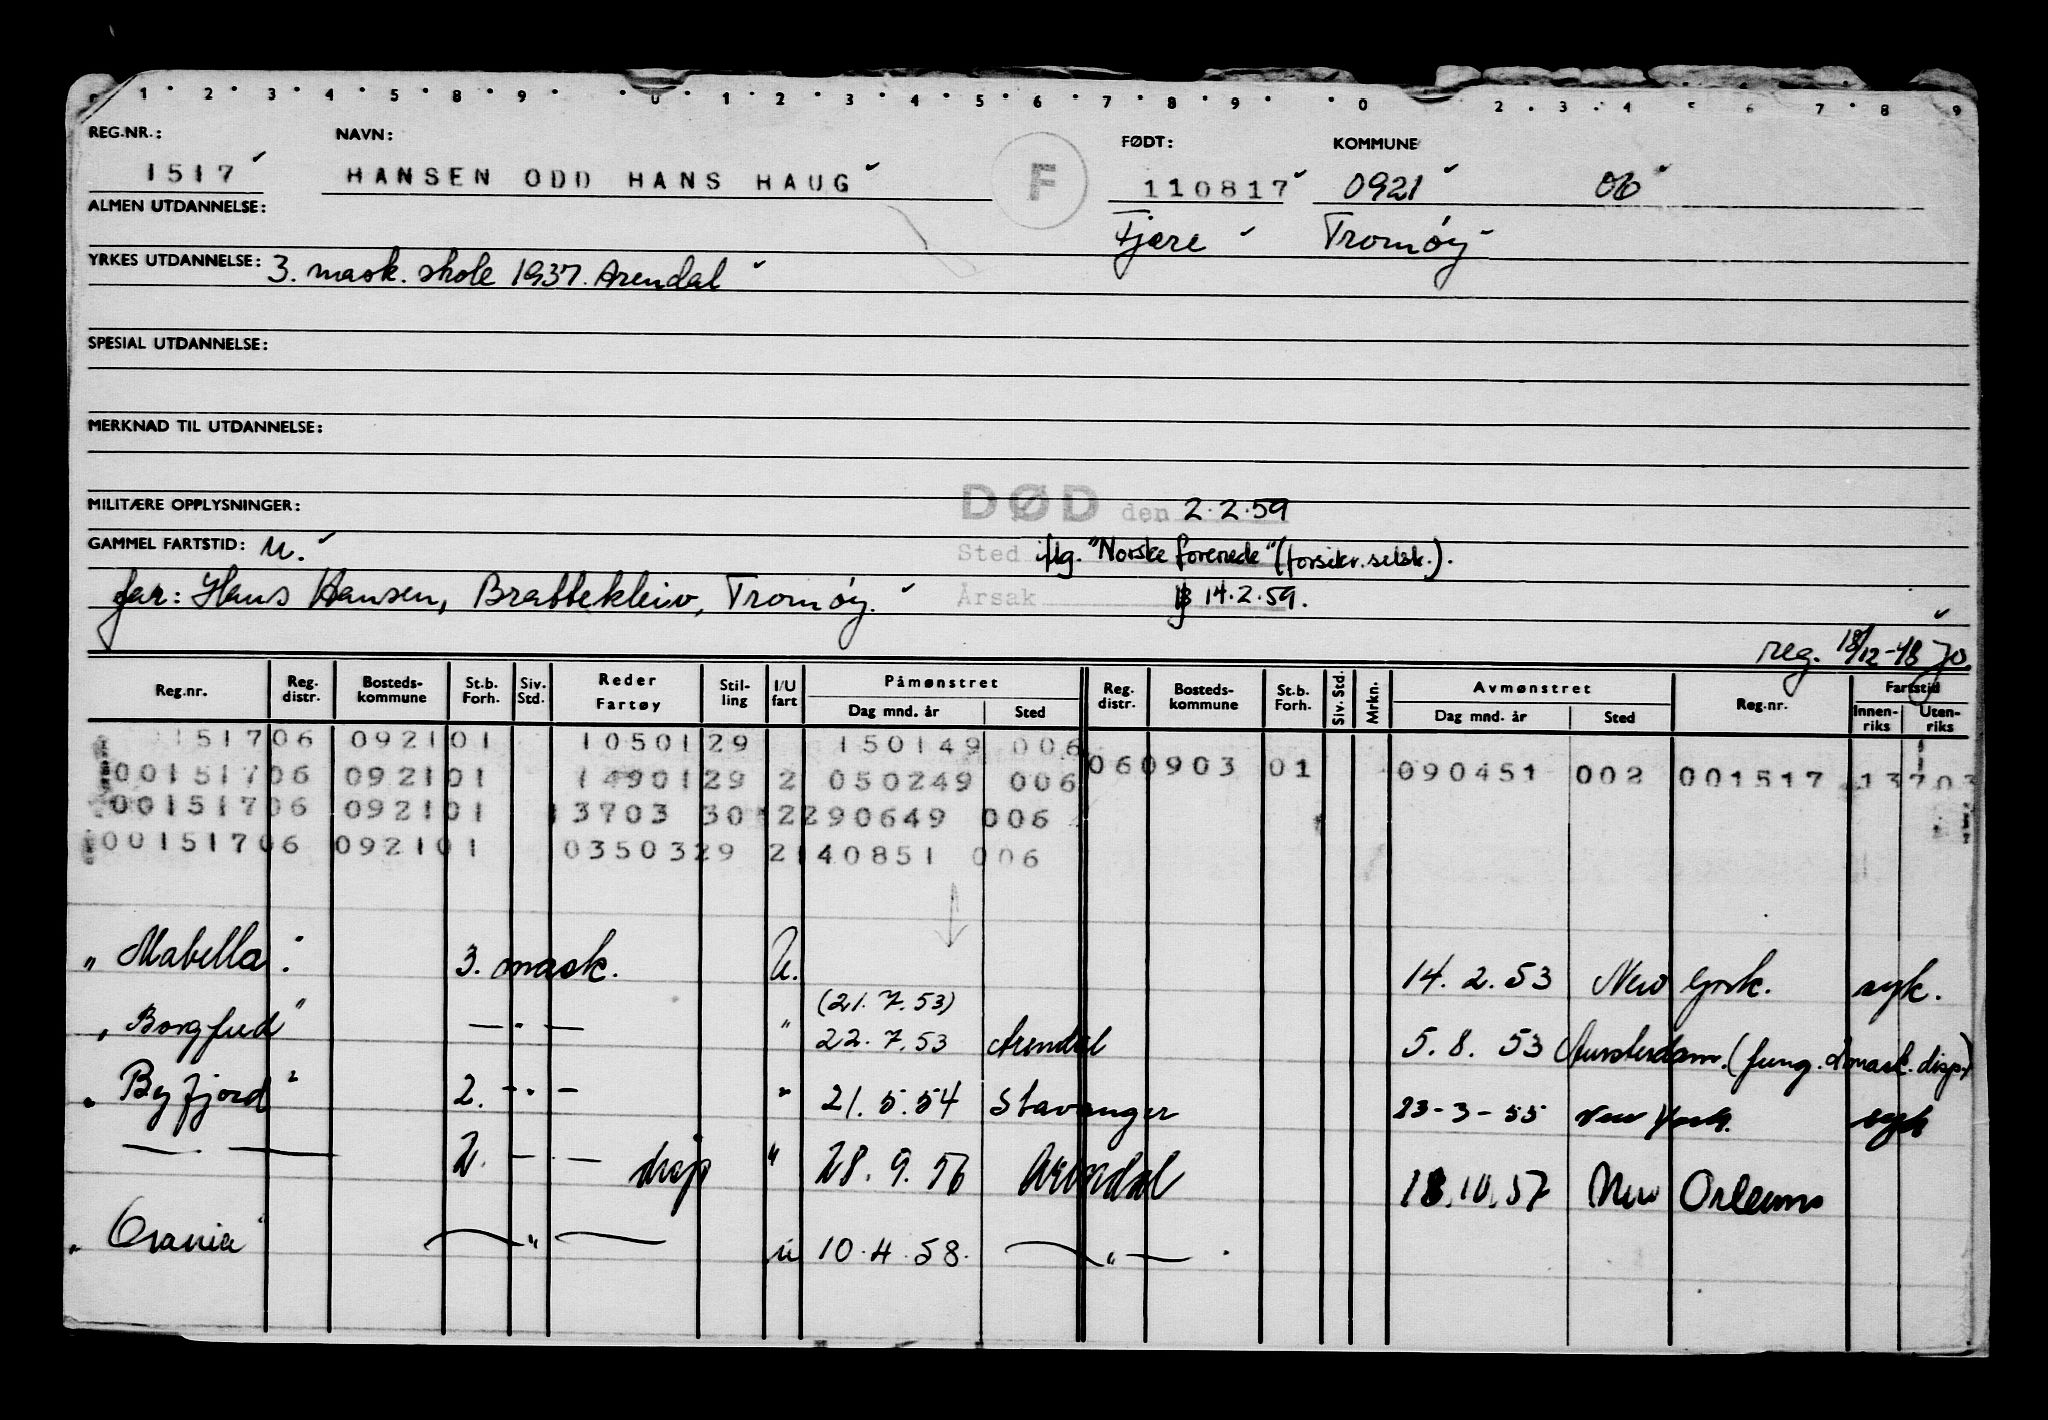 1 2 3 4 5 8 9 0 1 2 3 4 5 6 7 8 9 0 2 3 4 5 6 7 8 9
REG.NR.: NAVN: FØDT: KOMMUNE
1517 HANSEN ODD HANS HAUG F 110817 0921 06
ALMEN UTDANNELSE: Fjære Tromøy
YRKES UTDANNELSE: 3. mask. skole 1937. Arendal
SPESIAL UTDANNELSE:
MERKNAD TIL UTDANNELSE:
MILITÆRE OPPLYSNINGER: DØD den 2.2.59
GAMMEL FARTSTID: U. Sted iflg. "Norske forenede" (forsikr.selsk.).
far: Hans Hansen, Brattekleiv, Tromøy. Årsak 14.2.59.
reg. 18/12-48 Jo.
Reg.nr. Reg. distr. Bosteds-kommune St.b. Forh. Siv. Std. Reder Fartøy Stil-ling I/U fart Påmønstret Dag mnd. år Sted Reg. distr. Bosteds-kommune St.b. Forh. Siv. Std. Mrkn. Avmønstret Dag mnd. år Sted Reg.nr. Fartstid Innen-riks Uten-riks
151706 092101 1050129 150149 006
060903 01 090451 002 001517 13703
00151706 092101 1490129 2 050249 006
00151706 092101 13703 30 2290649 006
00151706 092101 0350329 2140851 006
"Mabella". 3. mask. U. 14. 2. 53 New York. syk.
(21.7.53)
"Borgfred" — " — " 22.7.53 Arendal 5. 8. 53 Amsterdam. (fung. 2 mask. disp.)
"Byfjord" 2. - " - " 21.5.54 Stavanger 23-3-55 New York. syk
— . — 2. — . — disp " 28.9.56 Arendal 18.10.57 New Orleans
"Orania" — " — u 10.4.58. — " — .